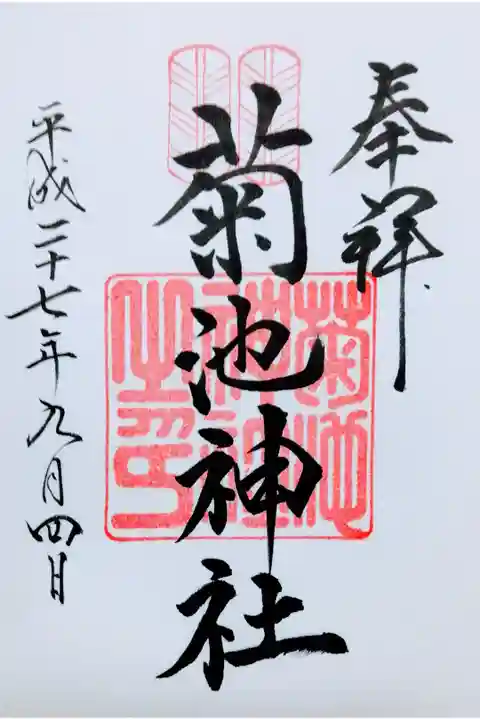 奉拝
菊池神社
平成二十七年九月四日
菊池
神社
之印